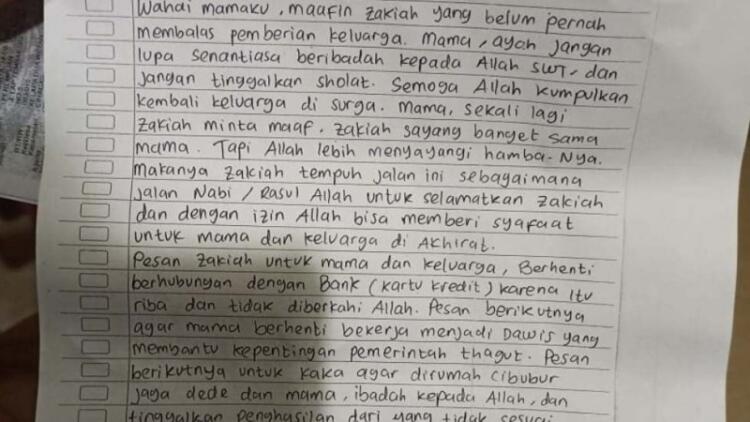 Wahai mamaku, maafin zakiah yang belum pernah
membalas pemberian keluarga. Mama, ayah jangan
lupa senantiasa beribadah kepada Allah SWT, dan
jangan tinggalkan sholat. Semoga Allah kumpulkan
kembali keluarga di surga. Mama, sekali lagi
zakiah minta maaf. zakiah sayang banget sama
mama. Tapi Allah lebih menyayangi hamba-Nya.
makanya zakiah tempuh jalan ini sebagaimana
jalan Nabi / Rasul Allah untuk selamatkan zakiah
dan dengan izin Allah bisa memberi syafaat
untuk mama dan keluarga di Akhirat.
Pesan zakiah untuk mama dan keluarga, Berhenti
berhubungan dengan Bank (kartu kredit) karena itu
riba dan tidak diberkahi Allah. Pesan berikutnya
agar mama berhenti bekerja menjadi Dawis yang
membantu kepentingan pemerintah thagut. Pesan
berikutnya untuk kaka agar dirumah cibubur
jaga dede dan mama, ibadah kepada Allah, dan
tinggalkan penghasilan dari yang tidak sesuai